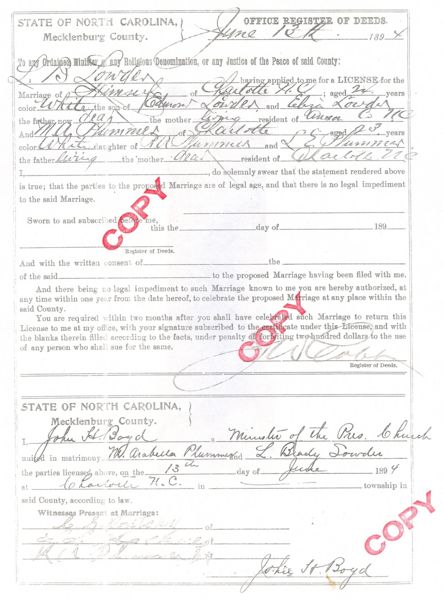 STATE OF NORTH CAROLINA,
Mecklenburg County.
OFFICE REGISTER OF DEEDS.
June 13th 1894
To any Ordained Minister of any Religious Denomination, or any Justice of the Peace of said County:
L. B Lowder having applied to me for a LICENSE for the
Marriage of Himself of Charlotte N.C; aged 22 years
color White the son of Edmond Lowder and Eliza Lowder
the father now dead the mother living resident of Union C NC
And M.A. Plummer of Charlotte aged 23 years
color White daughter of Plummer and L E Plummer
the father living the mother dead resident of Charlotte NC
I, , do solemnly swear that the statement rendered above
is true; that the parties to the proposed Marriage are of legal age, and that there is no legal impediment
to the said Marriage.
Sworn to and subscribed before me,
this the day of 189
Register of Deeds.
And with the written consent of the
of the said to the proposed Marriage having been filed with me.
And there being no legal impediment to such Marriage known to me you are hereby authorized, at
any time within one year from the date hereof, to celebrate the proposed Marriage at any place within the
said County.
You are required within two months after you shall have celebrated such Marriage to return this
License to me at my office, with your signature subscribed to the certificate under this License, and with
the blanks therein filled according to the facts, under penalty of forfeiting two hundred dollars to the use
of any person who shall sue for the same.
Cobb
Register of Deeds.
STATE OF NORTH CAROLINA,
Mecklenburg County.
I, John H Boyd a Minister of the Pres. Church
united in matrimony Arabella Plummer and L. Brady Lowder
the parties licensed above, on the 13th day of June 1894
at Charlotte N.C. in township in
said County, according to law.
Witnesses Present at Marriage:
of
of
of
John H Boyd
COPY
COPY
COPY
COPY